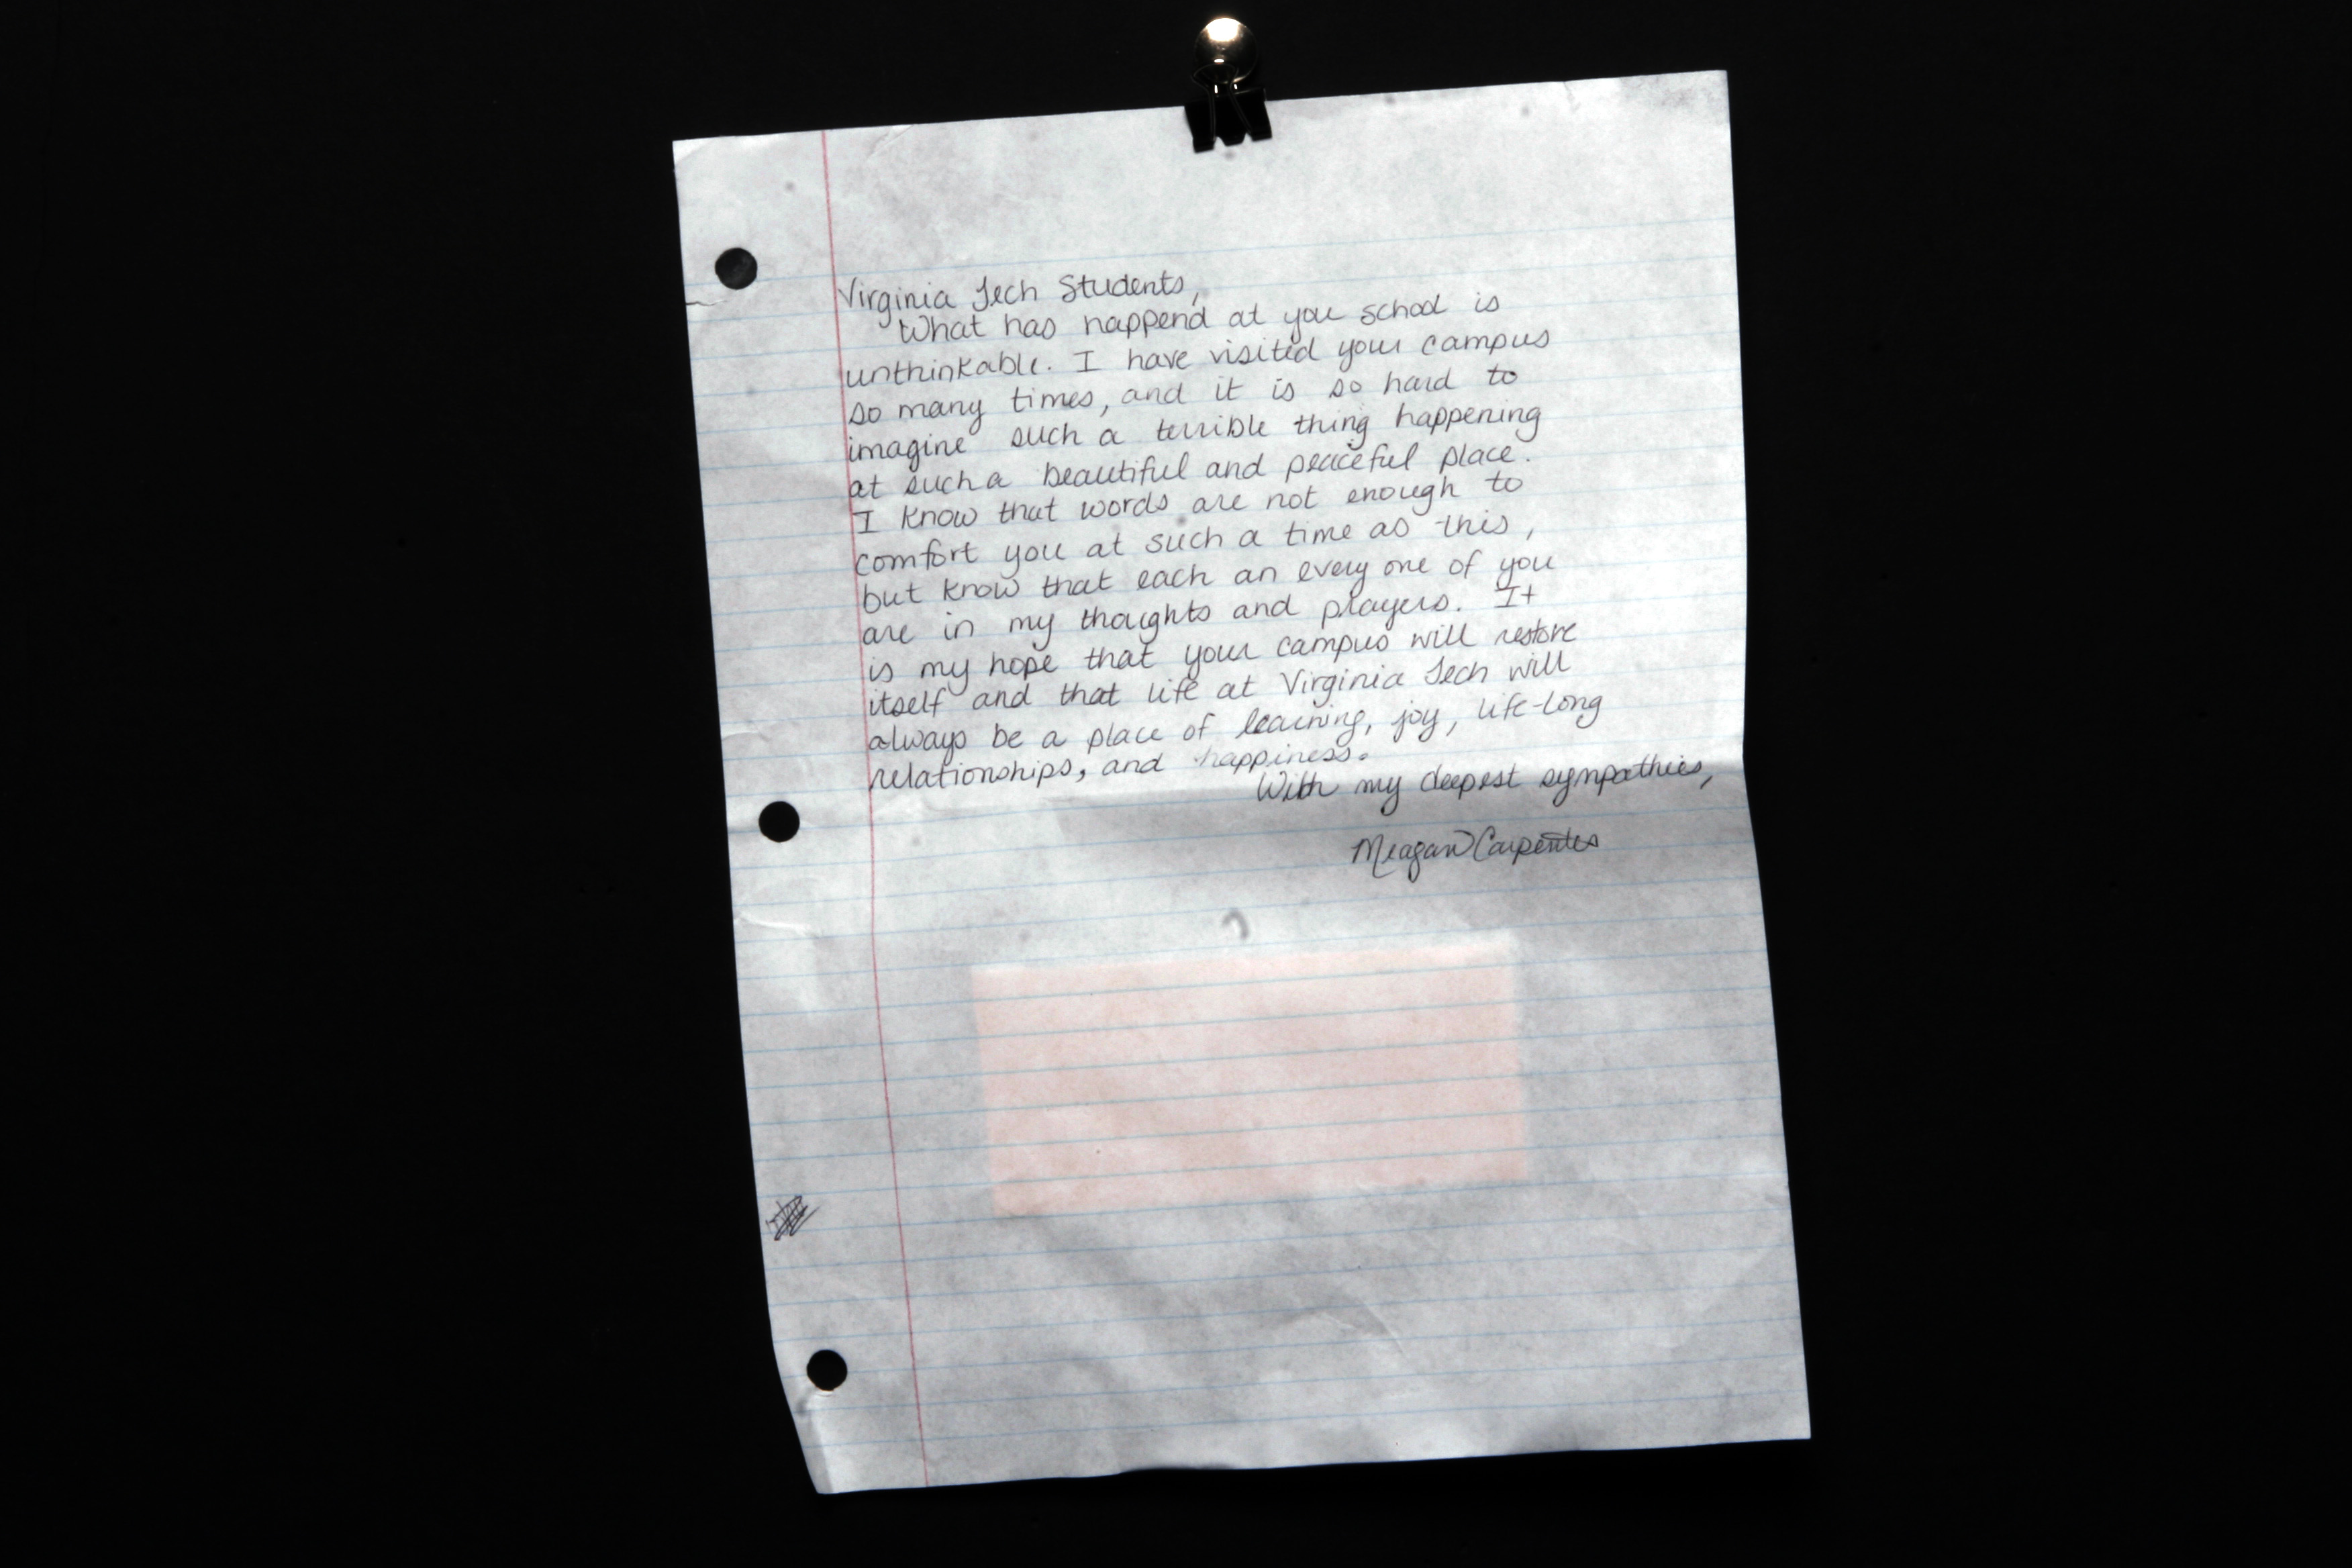 Virginia Tech Students,
What has happend at you school is
unthinkable. I have visited your campus
so many times, and it is so hard to
imagine such a terrible thing happening
at such a beautiful and peaceful place.
I know that words are not enough to
comfort you at such a time as this,
but know that each an every one of you
are in my thoughts and prayers. It
is my hope that your campus will restore
itself and that life at Virginia Tech will
always be a place of learning, joy, life-long
relationships, and happiness.
With my deepest sympathies,
Meagan Carpenter